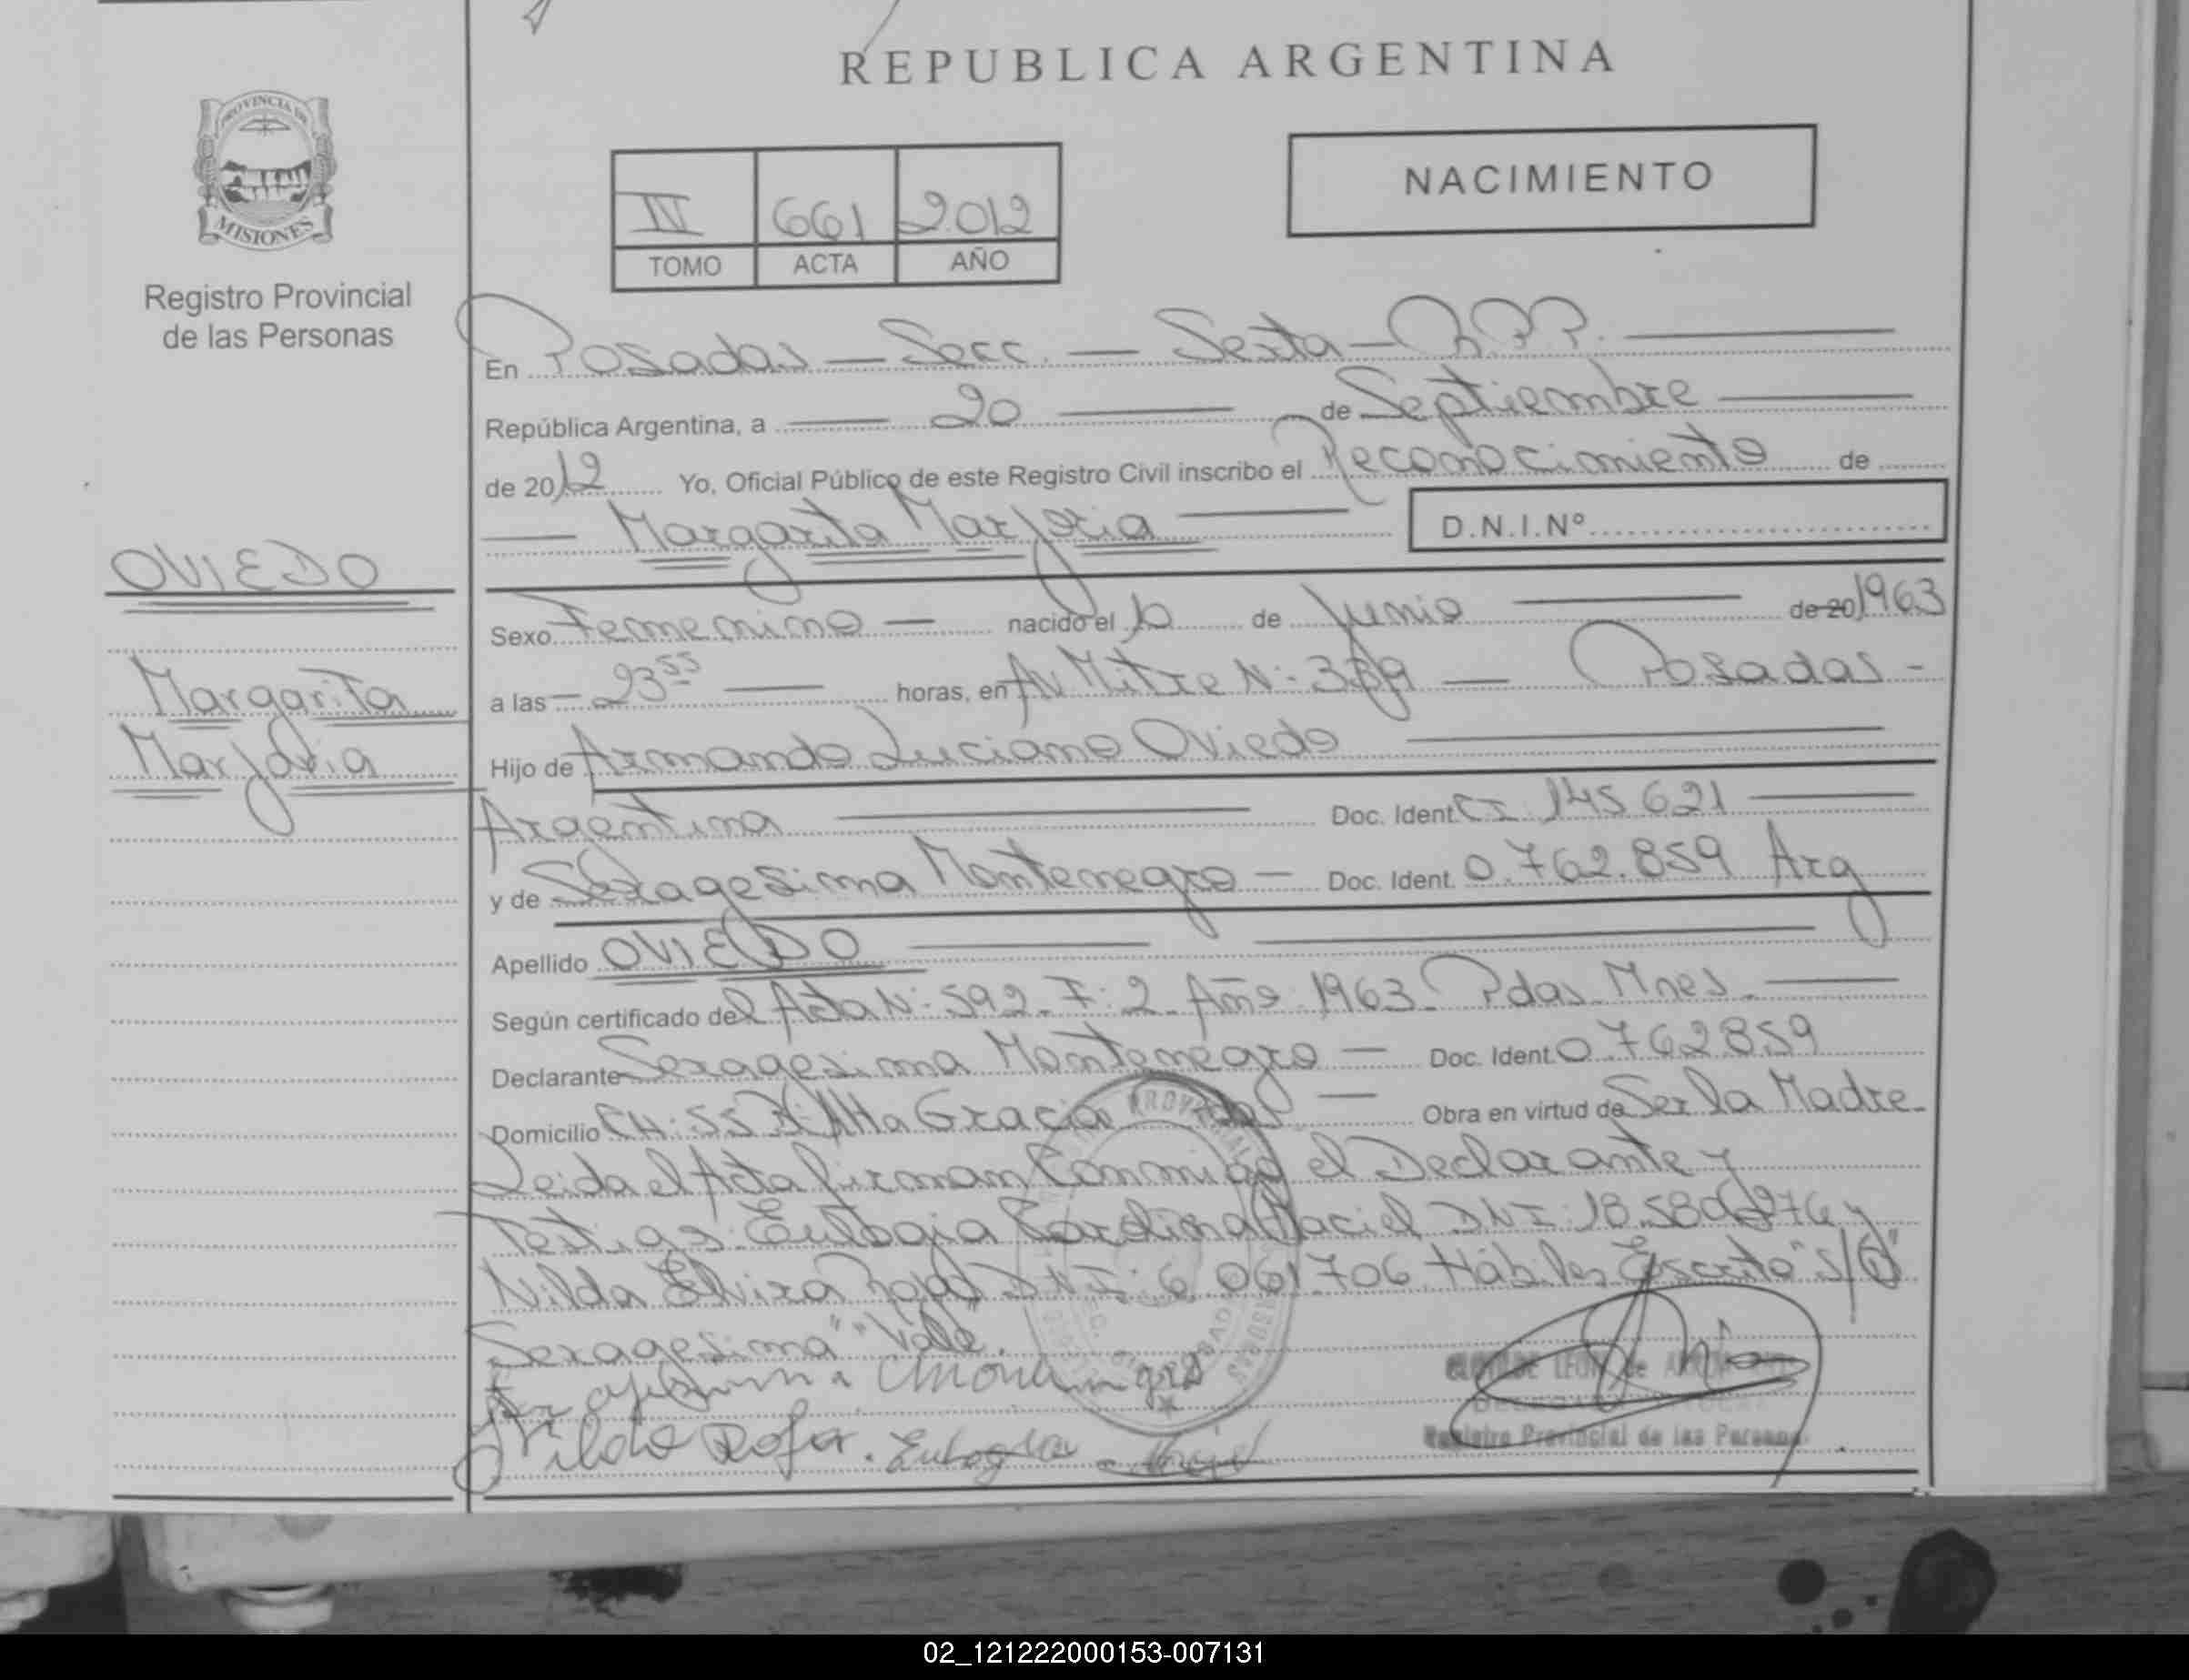 REPUBLICA ARGENTINA
PROVINCIA DE
MISIONES
Registro Provincial
de las Personas
NACIMIENTO
IV 661 2012
TOMO ACTA AÑO
En Posadas — Secc. — Sexta — R.P.P.
República Argentina, a — 20 — de Septiembre
de 2012 Yo, Oficial Público de este Registro Civil inscribo el Reconocimiento de
Margarita Marjoria D.N.I.Nº
OVIEDO
Margarita
Marjoria
Sexo Femenino — nacido el 10 de Junio de 20 1963
a las — 23 55 horas, en Av Mitre N: 389 — Posadas -
Hijo de Armando Luciano Oviedo
Argentina Doc. Ident CI 145 621
y de Sexagesima Montenegro — Doc. Ident. 0.762.859 Arg
Apellido OVIEDO
Según certificado del Acta N: 592. F: 2. Año 1963. Pdas Mnes.
Declarante Sexagesima Montenegro — Doc. Ident. 0 762859
Domicilio CH: 55 B: Alta Gracia Pdas — Obra en virtud de Ser la Madre
Leida el Acta firman Conmigo el Declarante y
Testigos: Eulogia Maciel DNI 18.580.976 y
Nilda Elvira Rojas DNI: 6 061 706 Hábiles Escrito "S/R"
Sexagesima" "Vale".
Nilda Rojas. Eulogia Maciel
Registro Provincial de las Personas
02_121222000153-007131